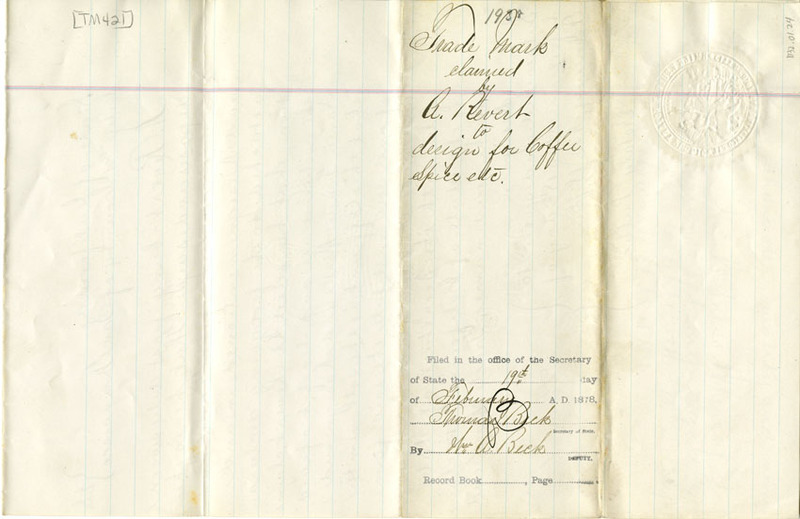 [TM421]
Trade Mark
claimed
by
A. Revert
to
design for Coffee
Spice etc.
Filed in the office of the Secretary
of State the 19th day
of February A. D. 1878,
Thomas Beck
Secretary of State.
By Wm. B. Beck
DEPUTY.
Record Book , Page